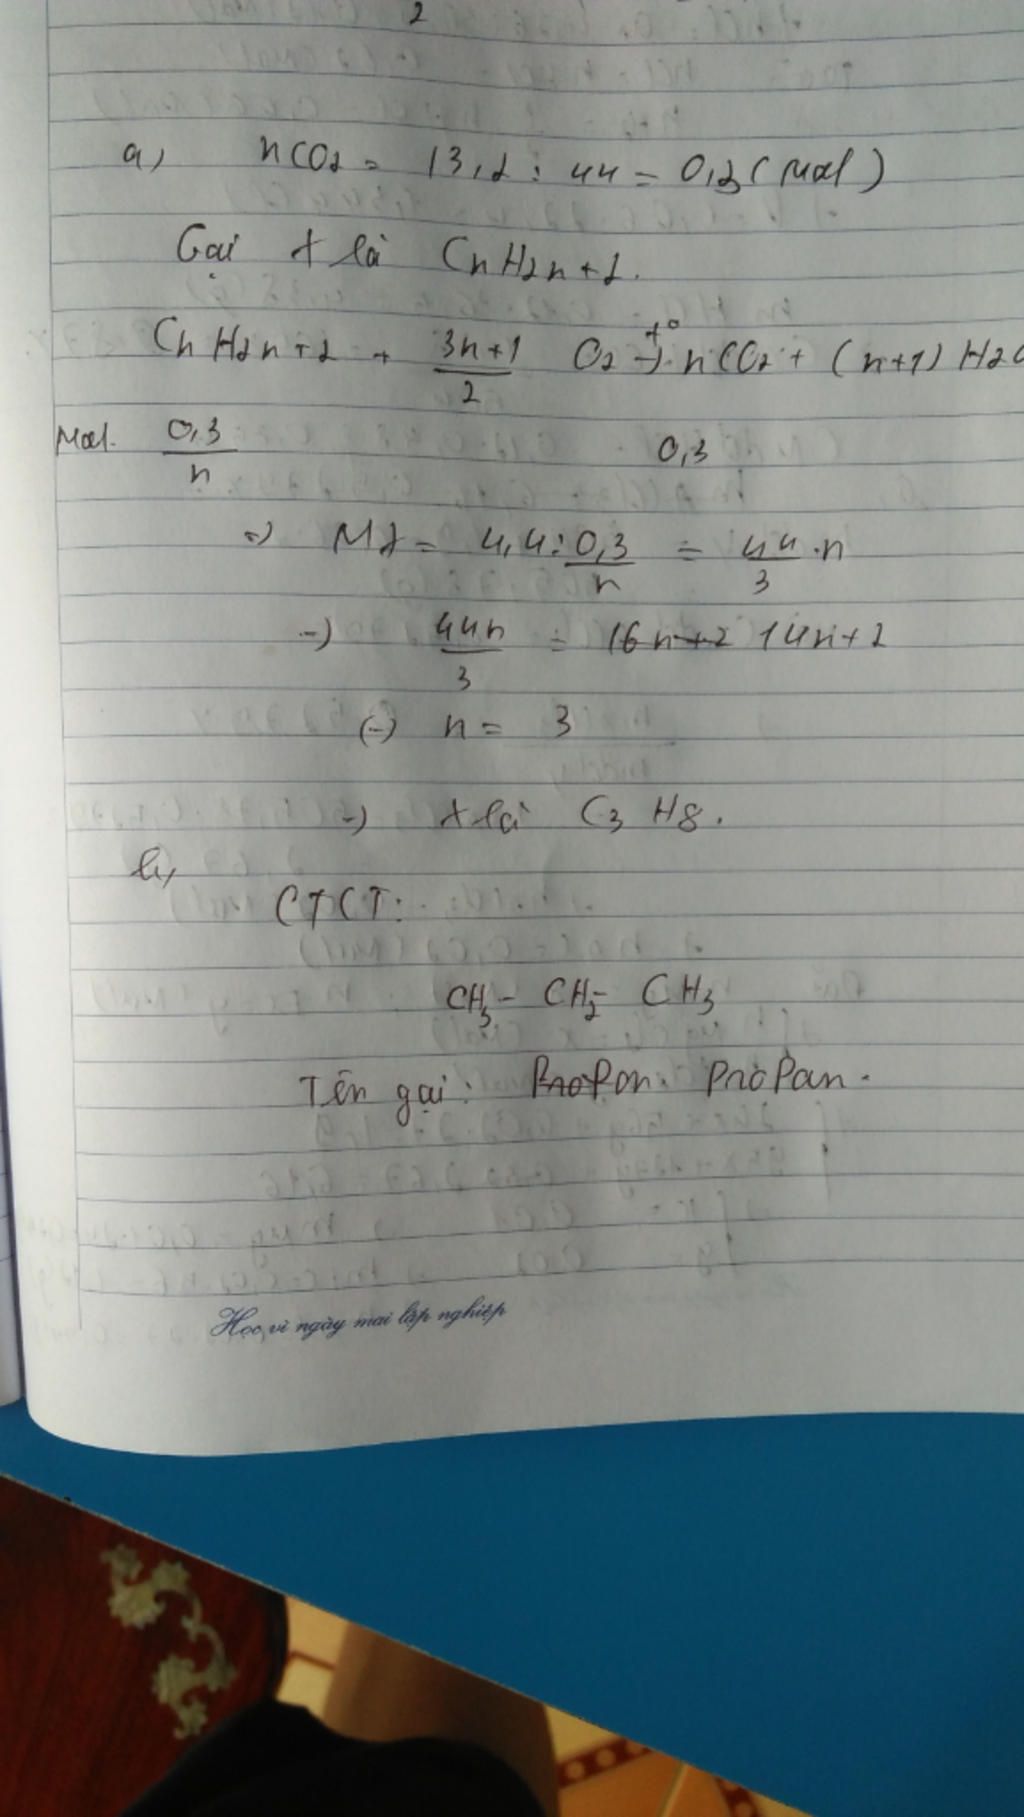 2
a, nCO2 = 13,2 : 44 = 0,3 (mol)
Gọi X là CnH2n+2.
CnH2n+2 + 3n+1/2 O2 t°→ nCO2 + (n+1) H2O
Mol. 0,3/n 0,3
=> MX = 4,4 : 0,3/n = 44/3 .n
=> 44n/3 = 16n+2 14n+2
(=) n = 3
=> X là C3H8.
b,
CTCT:
CH3 - CH2 - CH3
Tên gọi: Propon. Propan.
Học vì ngày mai lập nghiệp